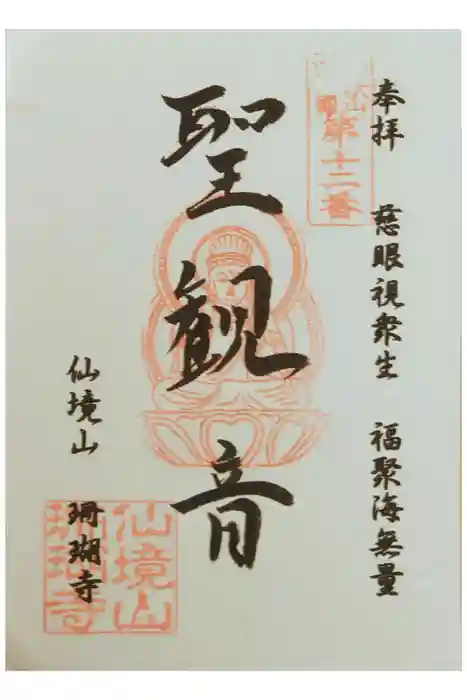 奉拝 慈眼視衆生 福聚海無量
第十二番
聖観音
仙境山 珊瑚寺
仙境山
珊瑚寺